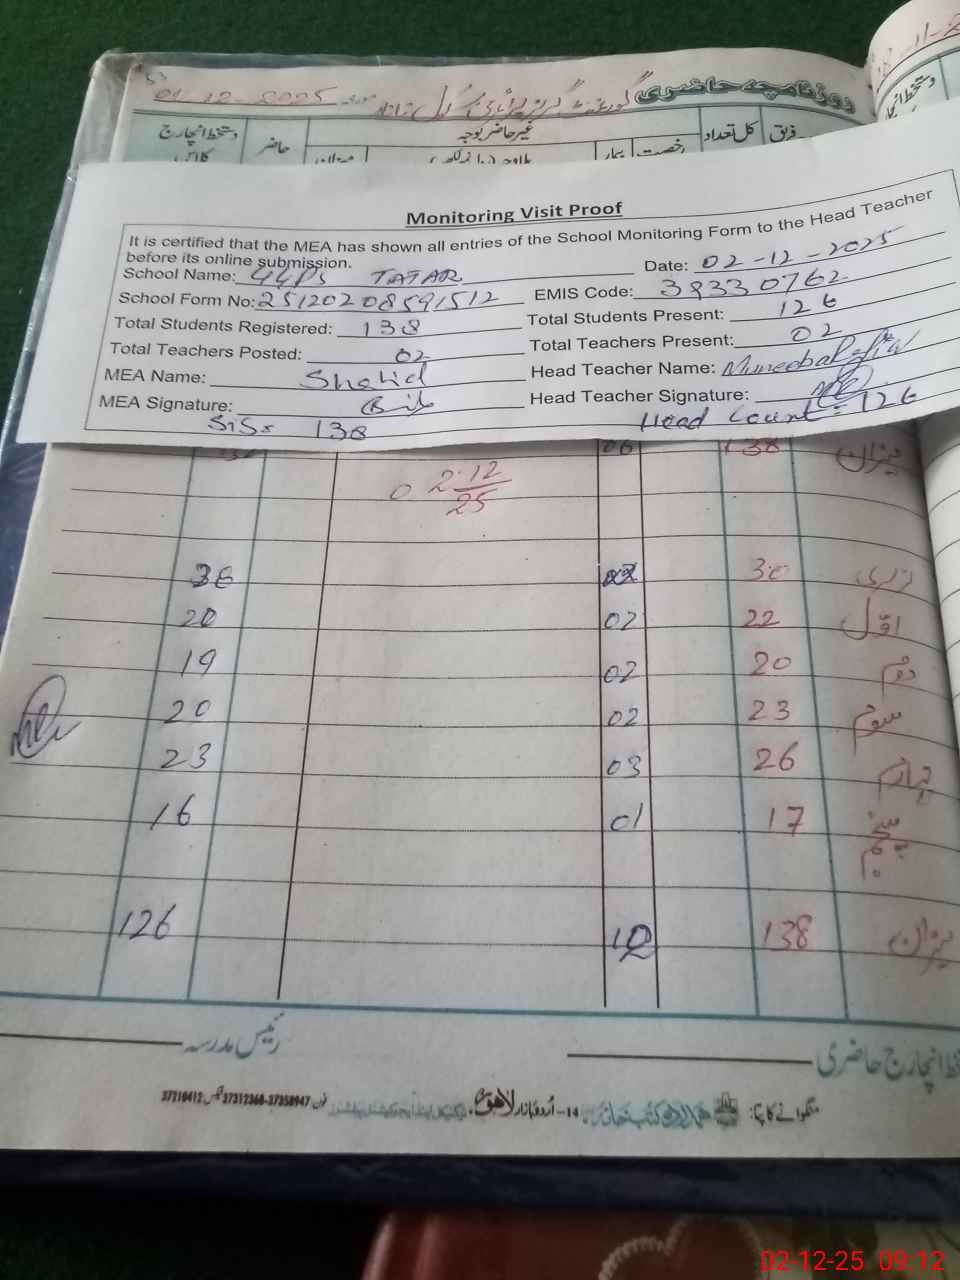 روزنامچہ حاضری گورنمنٹ گرلز پرائمری سکول تاتار مورخہ 01-12-2025
فریق کل تعداد غیر حاضر بوجہ حاضر دستخط انچارج کلاس
رخصت بیمار میزان
Monitoring Visit Proof
It is certified that the MEA has shown all entries of the School Monitoring Form to the Head Teacher
before its online submission.
School Name: GGPS TATAR Date: 02-12-2025
School Form No: 25120208591512 EMIS Code: 38330762
Total Students Registered: 138 Total Students Present: 126
Total Teachers Posted: 02 Total Teachers Present: 02
MEA Name: Shahid Head Teacher Name:
MEA Signature: Head Teacher Signature:
SiS= 138 Head Count = 126
میزان 138 06 132
02-12/25
نرسری 30 02 28
اول 22 02 20
دوم 20 02 19
سوم 23 02 20
چہارم 26 03 23
پنجم 17 01 16
میزان 138 12 126
دستخط انچارج حاضری رئیس مدرسہ
منگوانے کا پتا: ہمدرد کتب خانہ 14-اردو بازار لاہور۔ فون 37312360-37358947 فیکس: 37210412
02-12-25 09:12